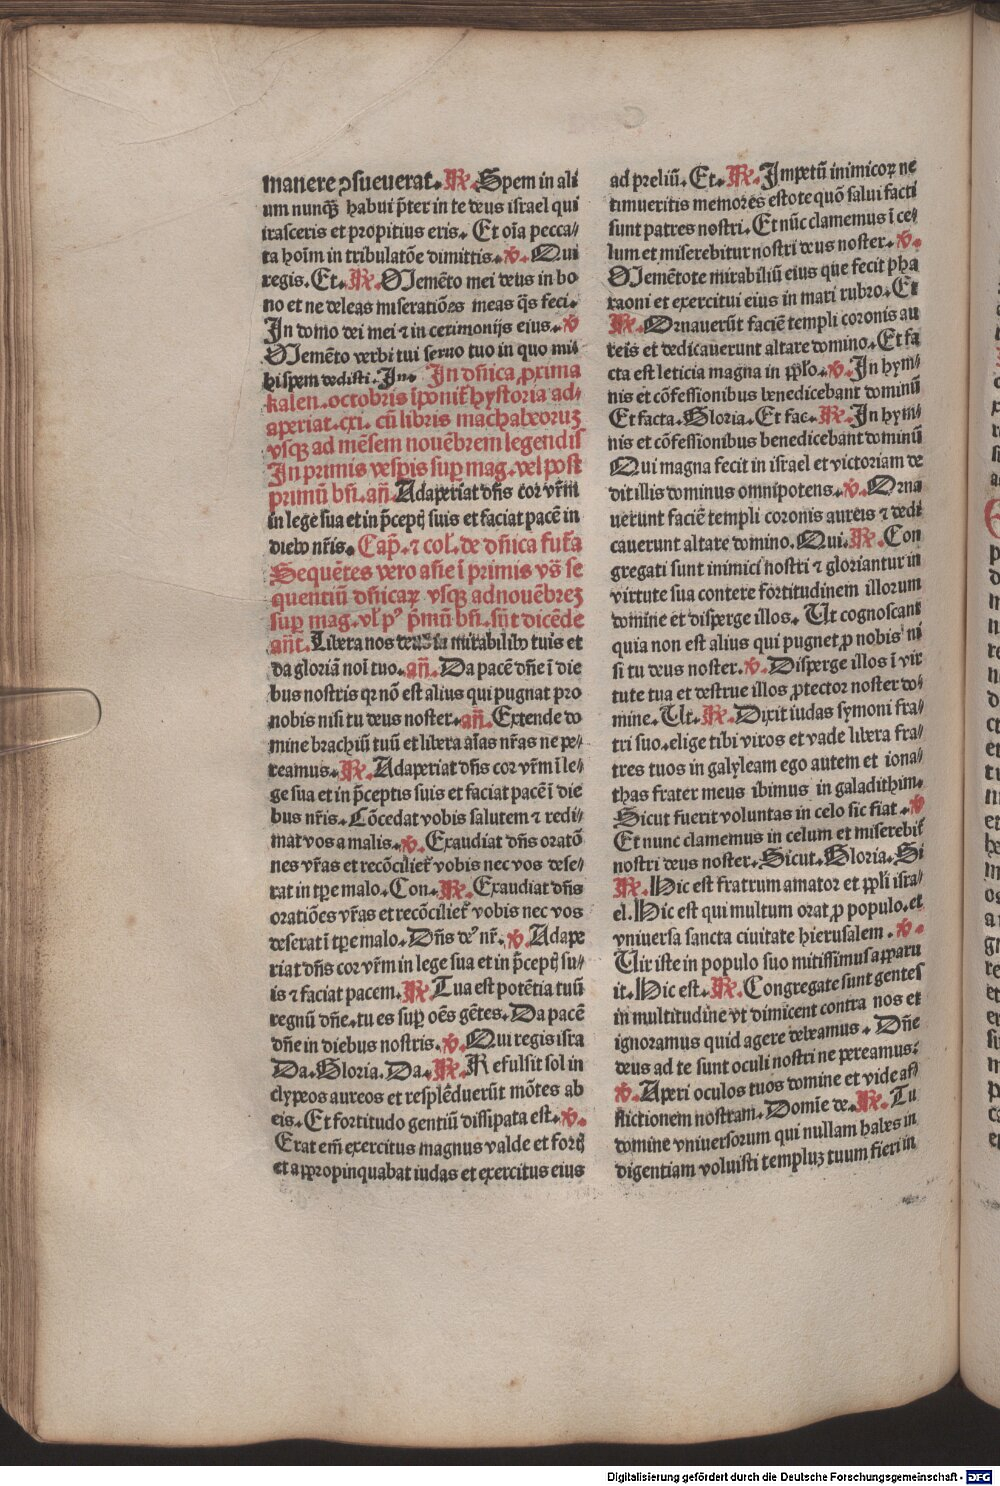 manere ↄsueuerat. ℟. Spem in ali
um nunꝗ̃ habui p̃ter in te deus israel qui
irasceris et propitius eris. Et oĩa pecca⸗
ta hoĩm in tribulatõe dimittis. ℣. Qui
regis. Et. ℟. Memẽto mei deus in bo
no et ne deleas miseratiões meas q̃s feci.
In domo dei mei ⁊ in cerimonijs eius. ℣
Memẽto verbi tui seruo tuo in quo mi⸗
hi spem dedisti. In. In dñica ꝓxima
kalen. octobris īponit̃ hystoria ad⸗
aperiat. cxi. cũ libris machabeoruꝫ
vsqꝫ ad mẽsem nouẽbrem legendis
In primis vesp̃is suꝑ mag. vel post
primũ bñ. añ. Adaperiat dñs cor vr̃m
in lege sua et in p̃ceptꝭ suis et faciat pacẽ in
diebꝰ nr̃is. Cap̃. ⁊ col̃. de dñica fut̃a
Sequẽtes vero añe ī primis vs̃ se
quentiũ dñicaꝝ vsqꝫ ad nouẽbreꝫ
suꝑ mag. vl̃ pꝰ p̃mũ bñ. sũt dicẽde
añt. Libera nos deus in mirabilibꝰ tuis et
da gloriã noĩ tuo. añ. Da pacẽ dñe ī die
bus nostris qꝛ nõ est alius qui pugnat pro
nobis nisi tu deus noster. añ. Extende do
mine brachiũ tuũ et libera aĩas nr̃as ne pe⸗
reamus. ℟. Adaperiat dñs cor vr̃m ī le⸗
ge sua et in p̃ceptis suis et faciat pacẽ ī die
bus nr̃is. Cõcedat vobis salutem ⁊ redi⸗
mat vos a malis. ℣. Exaudiat dñs oratõ
nes vr̃as et recõciliet̃ vobis nec vos dese⸗
rat in tꝑe malo. Con. ℟. Exaudiat dñs
oratiões vr̃as et recõciliet̃ vobis nec vos
deserat ī tꝑe malo. Dñs deꝰ nr̃. ℣. Adape
riat dñs cor vr̃m in lege sua et in p̃ceptꝭ su⸗
is ⁊ faciat pacem. ℟. Tua est potẽtia tuũ
regnũ dñe. tu es suꝑ oẽs gẽtes. Da pacẽ
dñe in diebus nostris. ℣. Qui regis isra
Da. Gloria. Da. ℟. Refulsit sol in
clypeos aureos et resplẽduerũt mõtes ab
eis. Et fortitudo gentiũ dissipata est. ℣.
Erat em̃ exercitus magnus valde et fortꝭ
et appropinquabat iudas et exercitus eius
ad preliũ. Et. ℟. Impetũ inimicoꝝ ne
timueritis memores estote quõ salui facti
sunt patres nostri. Et nũc clamemus ī ce⸗
lum et miserebitur nostri deus noster. ℣.
Memẽtote mirabiliũ eius que fecit pha
raoni et exercitui eius in mari rubro. Et
℟. Ornauerũt faciẽ templi coronis au
reis et dedicauerunt altare domino. Et fa
cta est leticia magna in ppl̃o. ℣. In hym⸗
nis et cõfessionibus benedicebant dominũ
Et facta. Gloria. Et fac. ℟. In hym⸗
nis et cõfessionibus benedicebant dominũ
Qui magna fecit in israel et victoriam de
dit illis dominus omnipotens. ℣. Orna
uerunt faciẽ templi coronis aureis ⁊ dedi
cauerunt altare domino. Qui. ℟. Con
gregati sunt inimici nostri ⁊ gloriantur in
virtute sua contere fortitudinem illorum
domine et disperge illos. Ut cognoscant
quia non est alius qui pugnet ꝓ nobis ni
si tu deus noster. ℣. Disperge illos ī vir
tute tua et destrue illos ꝓtector noster do⸗
mine. Ut. ℟. Dixit iudas symoni fra⸗
tri suo. elige tibi viros et vade libera fra⸗
tres tuos in galyleam ego autem et iona⸗
thas frater meus ibimus in galadithim.
Sicut fuerit voluntas in celo sic fiat. ℣
Et nunc clamemus in celum et miserebit̃
nostri deus noster. Sicut. Gloria. Si
℟. Hic est fratrum amator et ppl̃i isra⸗
el. Hic est qui multum orat ꝓ populo. et
vniuersa sancta ciuitate hierusalem. ℣.
Uir iste in populo suo mitissimus apparu
it. Hic est. ℟. Congregate sunt gentes
in multitudine vt dimicent contra nos et
ignoramus quid agere debeamus. Dñe
deus ad te sunt oculi nostri ne pereamus.
℣. Aperi oculos tuos domine et vide af⸗
flictionem nostram. Domĩe de. ℟. Tu
domine vniuersorum qui nullam habes in
digentiam voluisti templuꝫ tuum fieri in
Digitalisierung gefördert durch die Deutsche Forschungsgemeinschaft - DFG